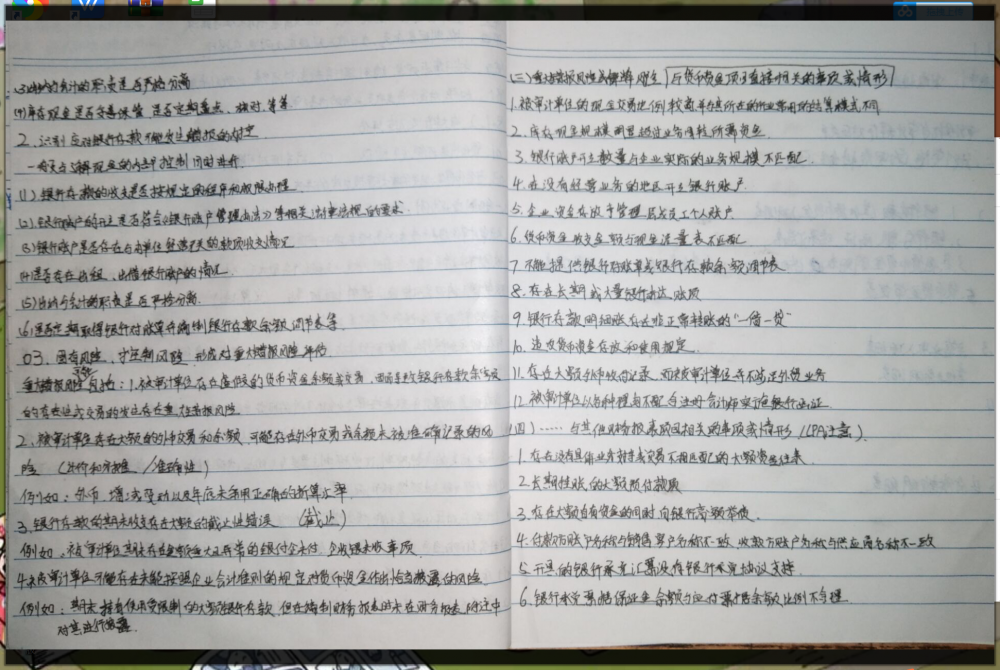 (3)出纳与会计的职责是否严格分离
(4)库存现金是否妥善保管,是否定期盘点、核对,等等
2. 识别应对银行存款可能发生错报的
一每天与了解现金的内部控制同时进行
(1)银行存款的收支是否按规定的程序和权限办理
(2)银行账户的开立是否符合《银行账户管理办法》等相关法律法规的要求.
(3)银行账户是否存在与本单位经营无关的款项收支情况
(4)是否存在出租、出借银行账户的情况.
(5)出纳与会计的职责是否严格分离.
(6)是否定期取得银行对账单并编制银行存款余额调节表等.
03. 固有风险、控制风险,形成对重大错报风险评估
重大错报风险包括:1.被审计单位存在虚假的货币资金余额或交易,因而导致银行存款余额
的存在性或交易的发生存在重大错报风险.
2. 被审计单位存在大额的外币交易和余额,可能存在外币交易或余额未被准确记录的风
险 (计价和分摊 / 准确性)
例如:外币,增减变动以及年底未采用正确的折算汇率
3. 银行存款的期末收支存在大额的截止性错误 (截止)
例如,被审计单位期末存在金额重大且异常的银付企未付、企收银未收事项
4. 被审计单位可能存在未能按照企业会计准则的规定对货币资金作出恰当披露的风险.
例如:期末持有使用受限制的大额银行存款,但在编制财务报表时未在财务报表附注中
对其进行披露.
(三)重大错报风险或舞弊 与货币资金项目直接相关的事项或情形
1. 被审计单位的现金交易比例较高,并与其所在的行业常用的结算模式不同
2. 库存现金规模明显超过业务周转所需资金
3. 银行账户开立数量与企业实际的业务规模不匹配
4. 在没有经营业务的地区开立银行账户
5. 企业资金存放于管理层或员工个人账户
6. 货币资金收支金额与现金流量表不匹配
7. 不能提供银行对账单或银行存款余额调节表
8. 存在长期或大量银行未达账项
9. 银行存款明细账存在非正常转账的“一借一贷”
10. 违反货币资金存放和使用规定.
11. 存在大额外币收付记录,而被审计单位并不涉足外贸业务
12. 被审计单位以各种理由不配合注册会计师实施银行函证.
(四)…… 与其他财务报表项目相关的事项或情形 / (CPA注意).
1. 存在没有具体业务支持或交易不相匹配的大额资金往来.
2. 长期挂账的大额预付款项
3. 存在大额自有资金的同时,向银行高额举债.
4. 付款方账户名称与销售客户名称不一致、收款方账户名称与供应商名称不一致
5. 开具的银行承兑汇票没有银行承兑协议支持.
6. 银行承兑票据保证金余额与应付票据余额比例不合理.